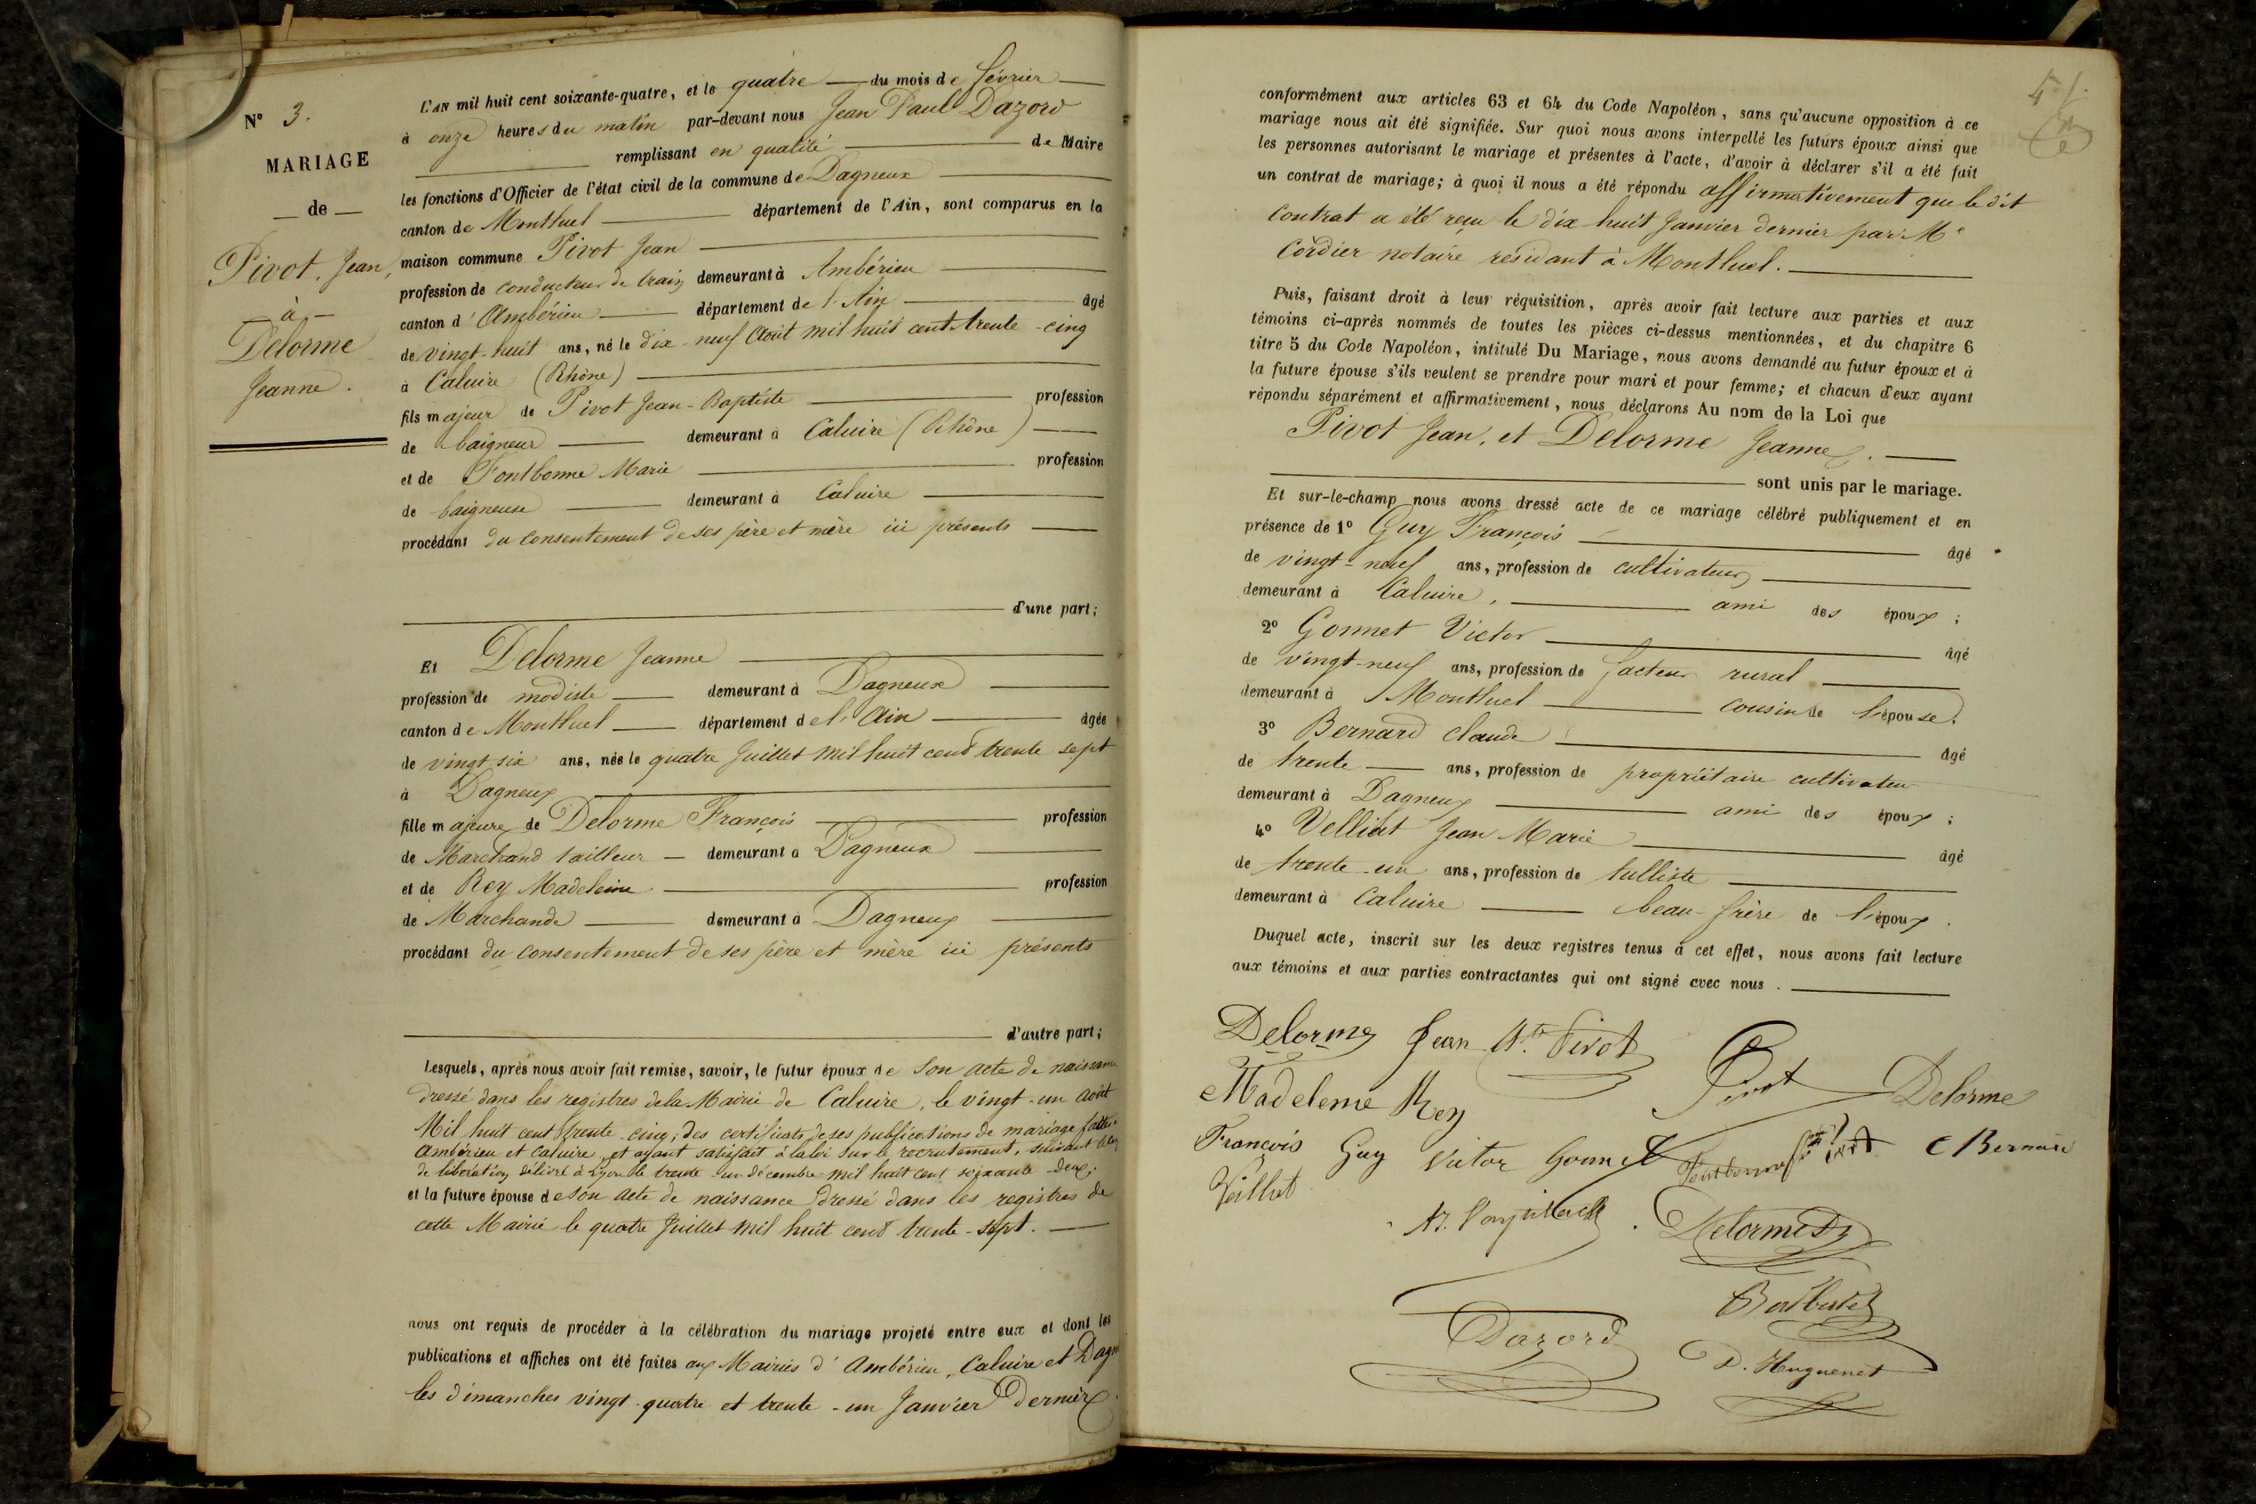 N° 3.
MARIAGE
— de —
Pivot, Jean,
— à —
Delorme
Jeanne.
L'AN mil huit cent soixante-quatre, et le quatre — du mois de février —
à onze heures du matin par-devant nous Jean Paul Dazord
— remplissant en qualité — de Maire
les fonctions d'Officier de l'état civil de la commune de Dagneux —
canton de Montluel — département de l'Ain, sont comparus en la
maison commune Pivot Jean —
profession de conducteur de train demeurant à Ambérieu —
canton d'Ambérieu — département de l'Ain — âgé
de vingt-huit ans, né le dix-neuf Août mil huit cent trente-cinq
à Caluire (Rhône) —
fils majeur de Pivot Jean-Baptiste — profession
de baigneur — demeurant à Caluire (Rhône) —
et de Fontbonne Marie — profession
de baigneuse — demeurant à Caluire —
procédant du consentement de ses père et mère ici présents —
— d'une part;
Et Delorme Jeanne —
profession de modiste — demeurant à Dagneux —
canton de Montluel — département de l'Ain — âgée
de vingt six ans, née le quatre Juillet mil huit cent trente sept
à Dagneux —
fille majeure de Delorme François — profession
de Marchand tailleur — demeurant à Dagneux —
et de Rey Madeleine — profession
de Marchande — demeurant à Dagneux —
procédant du consentement de ses père et mère ici présents
— d'autre part;
Lesquels, après nous avoir fait remise, savoir, le futur époux de son acte de naissance
dressé dans les registres de la Mairie de Caluire, le vingt-un août
Mil huit cent trente-cinq; des certificats de ses publications de mariage faites
Ambérieu et Caluire, et ayant satisfait à la loi sur le recrutement, suivant
de libération délivré à Lyon le trente-un décembre mil huit cent soixante-deux;
et la future épouse de son acte de naissance dressé dans les registres de
cette Mairie le quatre Juillet mil huit cent trente-sept. —
nous ont requis de procéder à la célébration du mariage projeté entre eux et dont les
publications et affiches ont été faites aux Mairies d'Ambérieu, Caluire et Dagn
les dimanches vingt-quatre et trente-un Janvier dernier
conformément aux articles 63 et 64 du Code Napoléon, sans qu'aucune opposition à ce
mariage nous ait été signifiée. Sur quoi nous avons interpellé les futurs époux ainsi que
les personnes autorisant le mariage et présentes à l'acte, d'avoir à déclarer s'il a été fait
un contrat de mariage; à quoi il nous a été répondu affirmativement que le dit
contrat a été reçu le dix huit Janvier dernier par Me
Cordier notaire résidant à Montluel. —
Puis, faisant droit à leur réquisition, après avoir fait lecture aux parties et aux
témoins ci-après nommés de toutes les pièces ci-dessus mentionnées, et du chapitre 6
titre 5 du Code Napoléon, intitulé Du Mariage, nous avons demandé au futur époux et à
la future épouse s'ils veulent se prendre pour mari et pour femme; et chacun d'eux ayant
répondu séparément et affirmativement, nous déclarons Au nom de la Loi que
Pivot Jean, et Delorme Jeanne. —
— sont unis par le mariage.
Et sur-le-champ nous avons dressé acte de ce mariage célébré publiquement et en
présence de 1° Guy François — âgé
de vingt-neuf ans, profession de cultivateur —
demeurant à Caluire, — ami des époux;
2° Gonnet Victor — âgé
de vingt-neuf ans, profession de facteur rural —
demeurant à Montluel — cousin de l'épouse.
3° Bernard Claude — âgé
de trente — ans, profession de propriétaire cultivateur
demeurant à Dagneux — ami des époux;
4° Velliat Jean Marie — âgé
de trente-un ans, profession de tulliste —
demeurant à Caluire — beau-frère de l'époux.
Duquel acte, inscrit sur les deux registres tenus à cet effet, nous avons fait lecture
aux témoins et aux parties contractantes qui ont signé avec nous. —
Delorme Jean Bte Pivot Pivot Delorme
Madeleine Rey
François Guy Victor Gonnet C Bernard
Veilliat
Delorme
Dazord
D. Huguenet